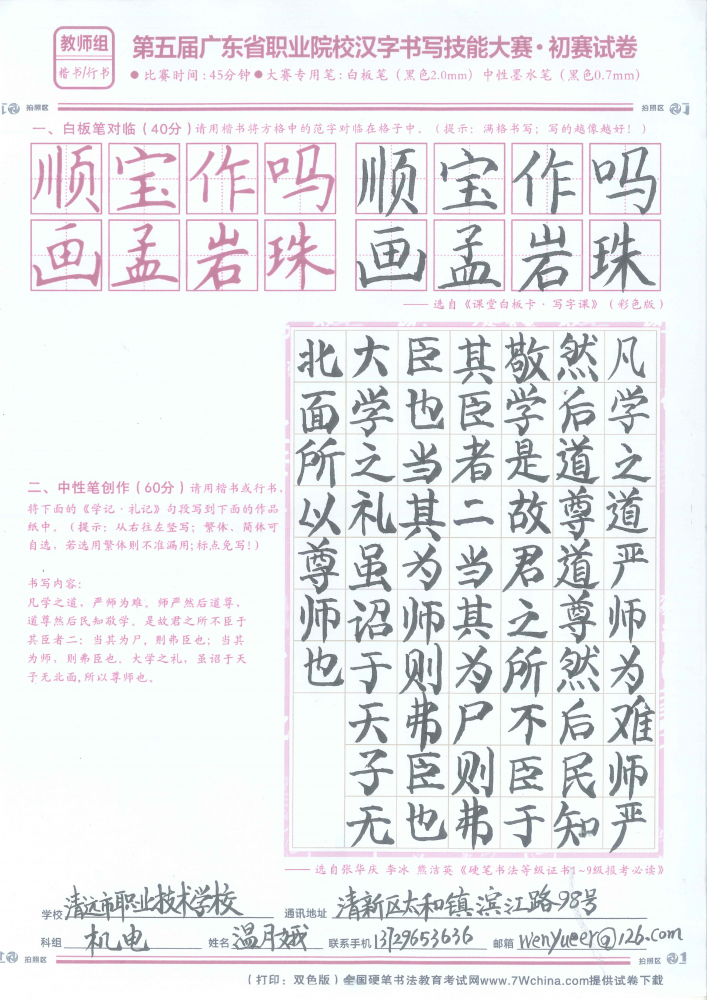 教师组
楷书/行书
第五届广东省职业院校汉字书写技能大赛·初赛试卷
●比赛时间:45分钟●大赛专用笔:白板笔(黑色2.0mm) 中性墨水笔(黑色0.7mm)
拍照区 拍照区
一、白板笔对临(40分)请用楷书将方格中的范字对临在格子中。(提示:满格书写;写的越像越好!)
顺宝作吗 顺宝作吗
画孟岩珠 画孟岩珠
——选自《课堂白板卡·写字课》(彩色版)
二、中性笔创作(60分)请用楷书或行书,
将下面的《学记·礼记》句段写到下面的作品
纸中。(提示:从右往左竖写;繁体、简体可
自选,若选用繁体则不准漏用;标点免写!)
书写内容:
凡学之道,严师为难。师严然后道尊,
道尊然后民知敬学。是故君之所不臣于
其臣者二:当其为尸,则弗臣也;当其
为师,则弗臣也。大学之礼,虽诏于天
子无北面,所以尊师也。
凡学之道严师为难师严
然后道尊道尊然后民知
敬学是故君之所不臣于
其臣者二当其为尸则弗
臣也当其为师则弗臣也
大学之礼虽诏于天子无
北面所以尊师也
——选自张华庆 李冰 熊洁英《硬笔书法等级证书1~9级报考必读》
学校 清远市职业技术学校 通讯地址 清新区太和镇滨江路98号
科组 机电 姓名 温月娥 联系手机 13729653636 邮箱 wenyueer@126.com
拍照区 拍照区
(打印:双色版)全国硬笔书法教育考试网www.7Wchina.com提供试卷下载